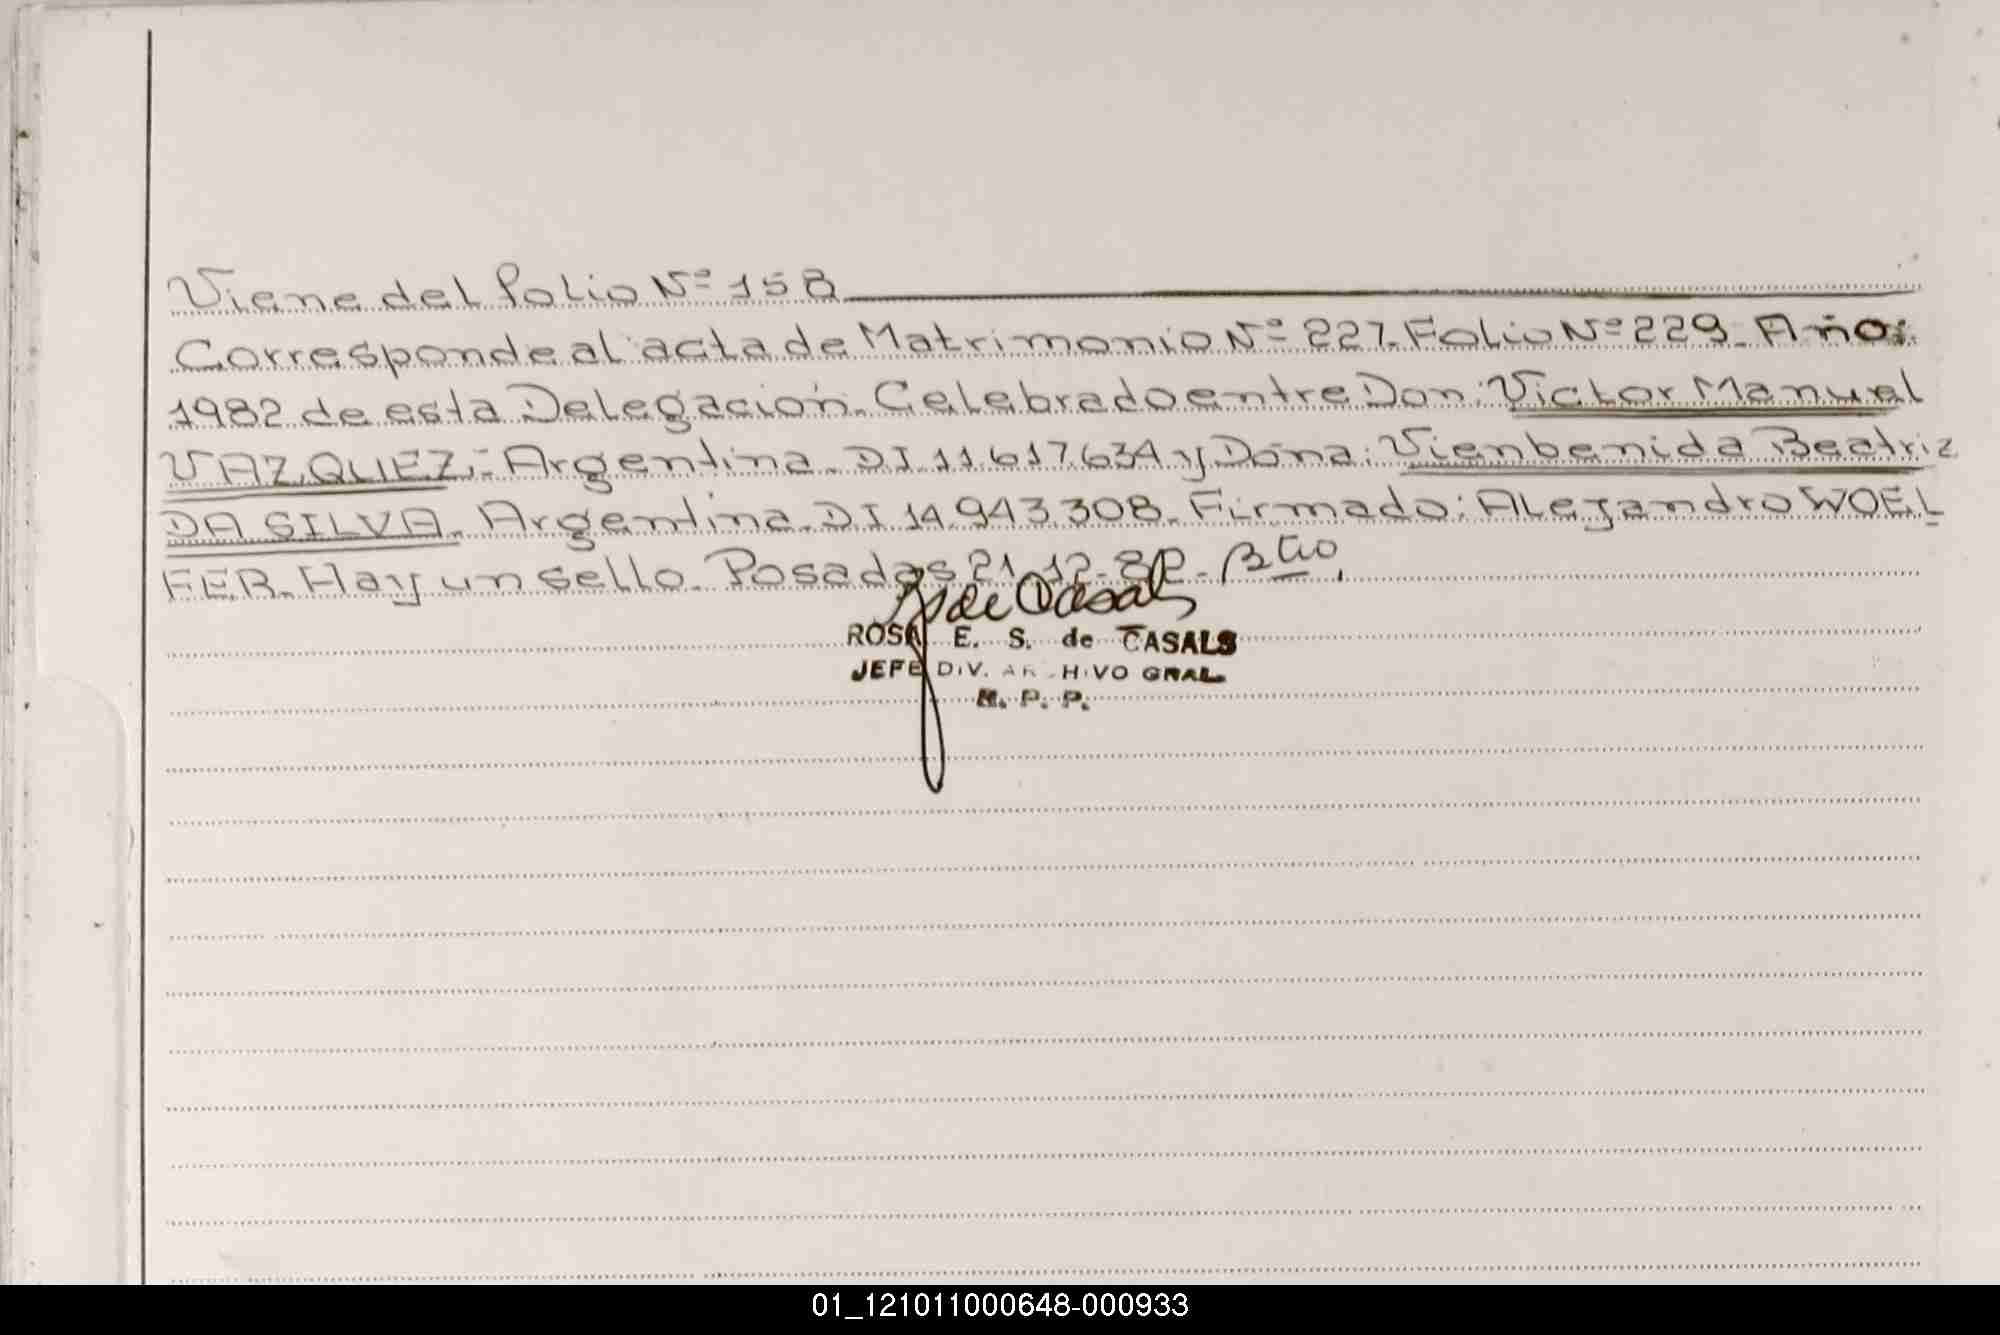 Viene del Folio Nº 158
Corresponde al acta de Matrimonio Nº 227. Folio Nº 229. Año:
1982 de esta Delegación. Celebrado entre Don: Victor Manuel
VAZQUEZ,- Argentina. DI 11.617.634 y Doña: Vienbenida Beatriz
DA SILVA. Argentina. DI 14.943.308. Firmado: Alejandro WOEL
FER. Hay un sello. Posadas 21-12-82-
ROSA E. S. de CASALS
JEFE DIV. AR HIVO GRAL.
R. P. P.
01_121011000648-000933